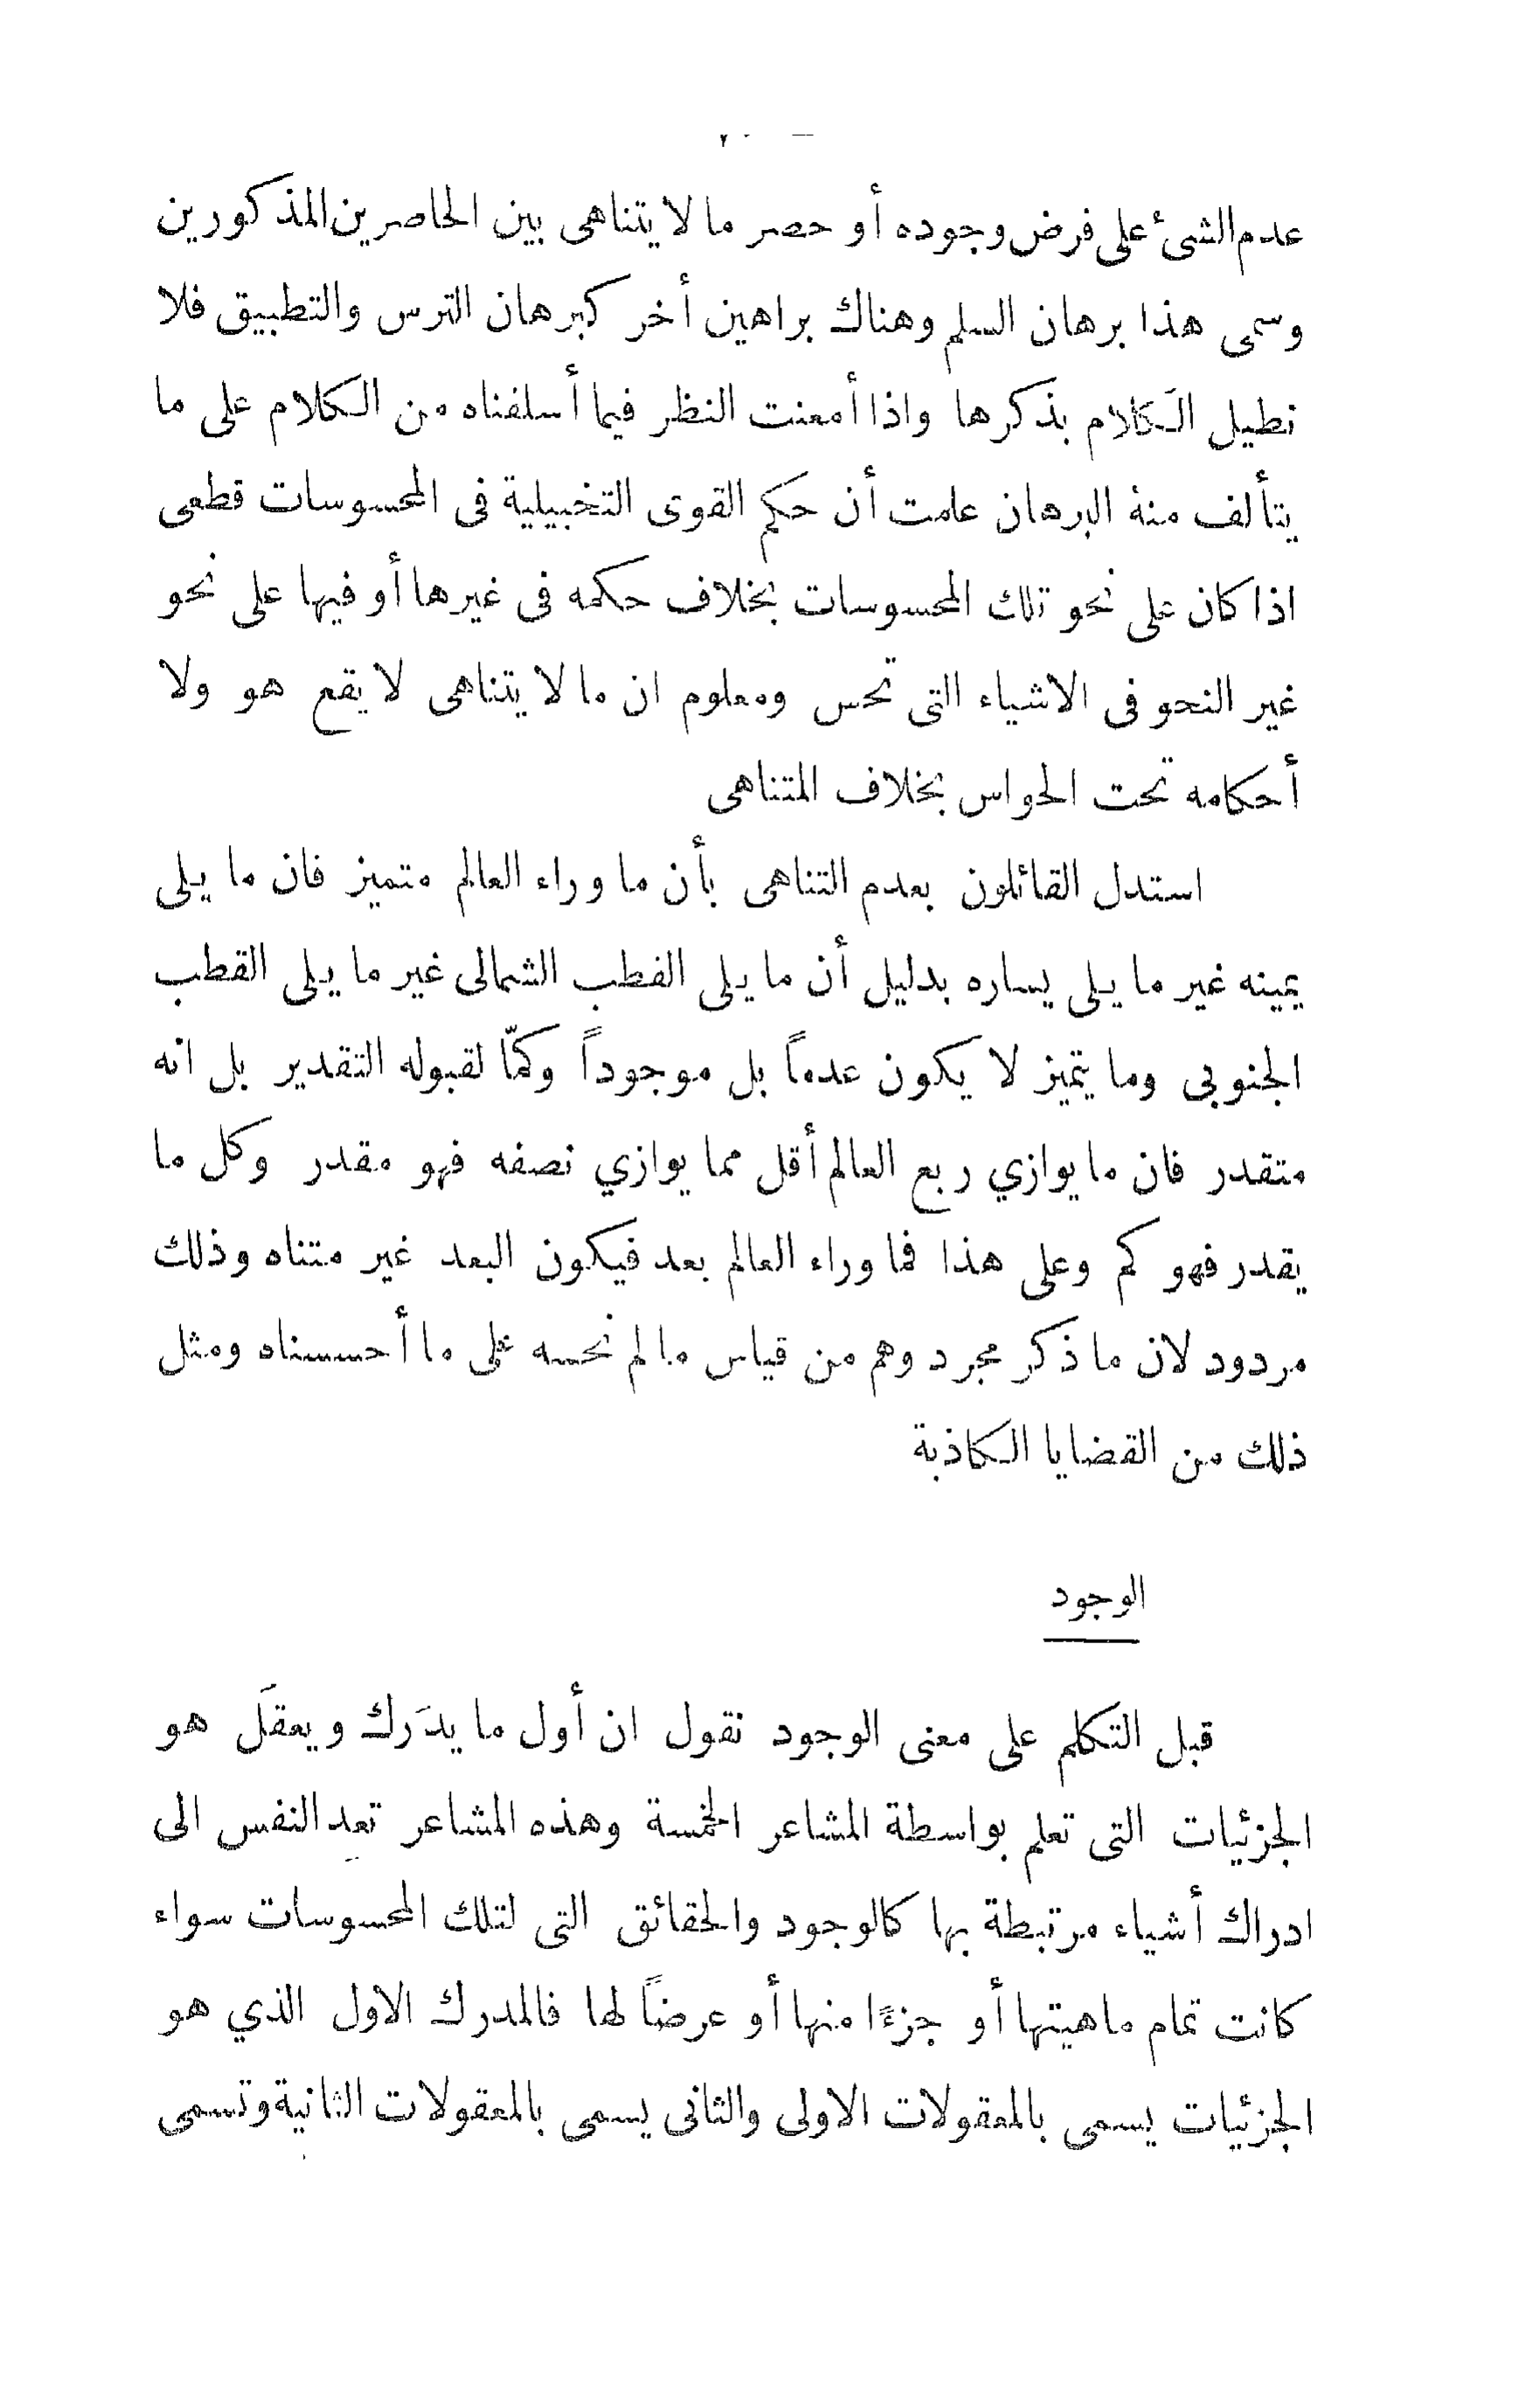 عدم الشئ على فرض وجوده أو حصر ما لا يتناهى بين الحاصرين المذكورين
وسمى هذا برهان السلم وهناك براهين أخر كبرهان الترس والتطبيق فلا
نطيل الكلام بذكرها واذا أمعنت النظر فيما أسلفناه من الكلام على ما
يتألف منه البرهان علمت أن حكم القوى التخييلية فى المحسوسات قطعى
اذا كان على نحو تلك المحسوسات بخلاف حكمه فى غيرها أو فيها على نحو
غير النحو فى الاشياء التى تحس ومعلوم ان ما لا يتناهى لا يقع هو ولا
أحكامه تحت الحواس بخلاف المتناهى
استدل القائلون بعدم التناهى بأن ما وراء العالم متميز فان ما يلى
يمينه غير ما يلى يساره بدليل أن ما يلى القطب الشمالى غير ما يلى القطب
الجنوبى وما يتميز لا يكون عدماً بل موجوداً وكمّا لقبوله التقدير بل انه
متقدر فان ما يوازي ربع العالم أقل مما يوازي نصفه فهو مقدر وكل ما
يقدر فهو كم وعلى هذا فما وراء العالم بعد فيكون البعد غير متناه وذلك
مردود لان ما ذكر مجرد وهم من قياس ما لم نحسه على ما أحسسناه ومثل
ذلك من القضايا الكاذبة
الوجود
قبل التكلم على معنى الوجود نقول ان أول ما يدَرك ويعقَل هو
الجزئيات التى تعلم بواسطة المشاعر الخمسة وهذه المشاعر تعد النفس الى
ادراك أشياء مرتبطة بها كالوجود والحقائق التى لتلك المحسوسات سواء
كانت تمام ماهيتها أو جزءًا منها أو عرضاً لها فالمدرك الاول الذي هو
الجزئيات يسمى بالمعقولات الاولى والثانى يسمى بالمعقولات الثانية وتسمى